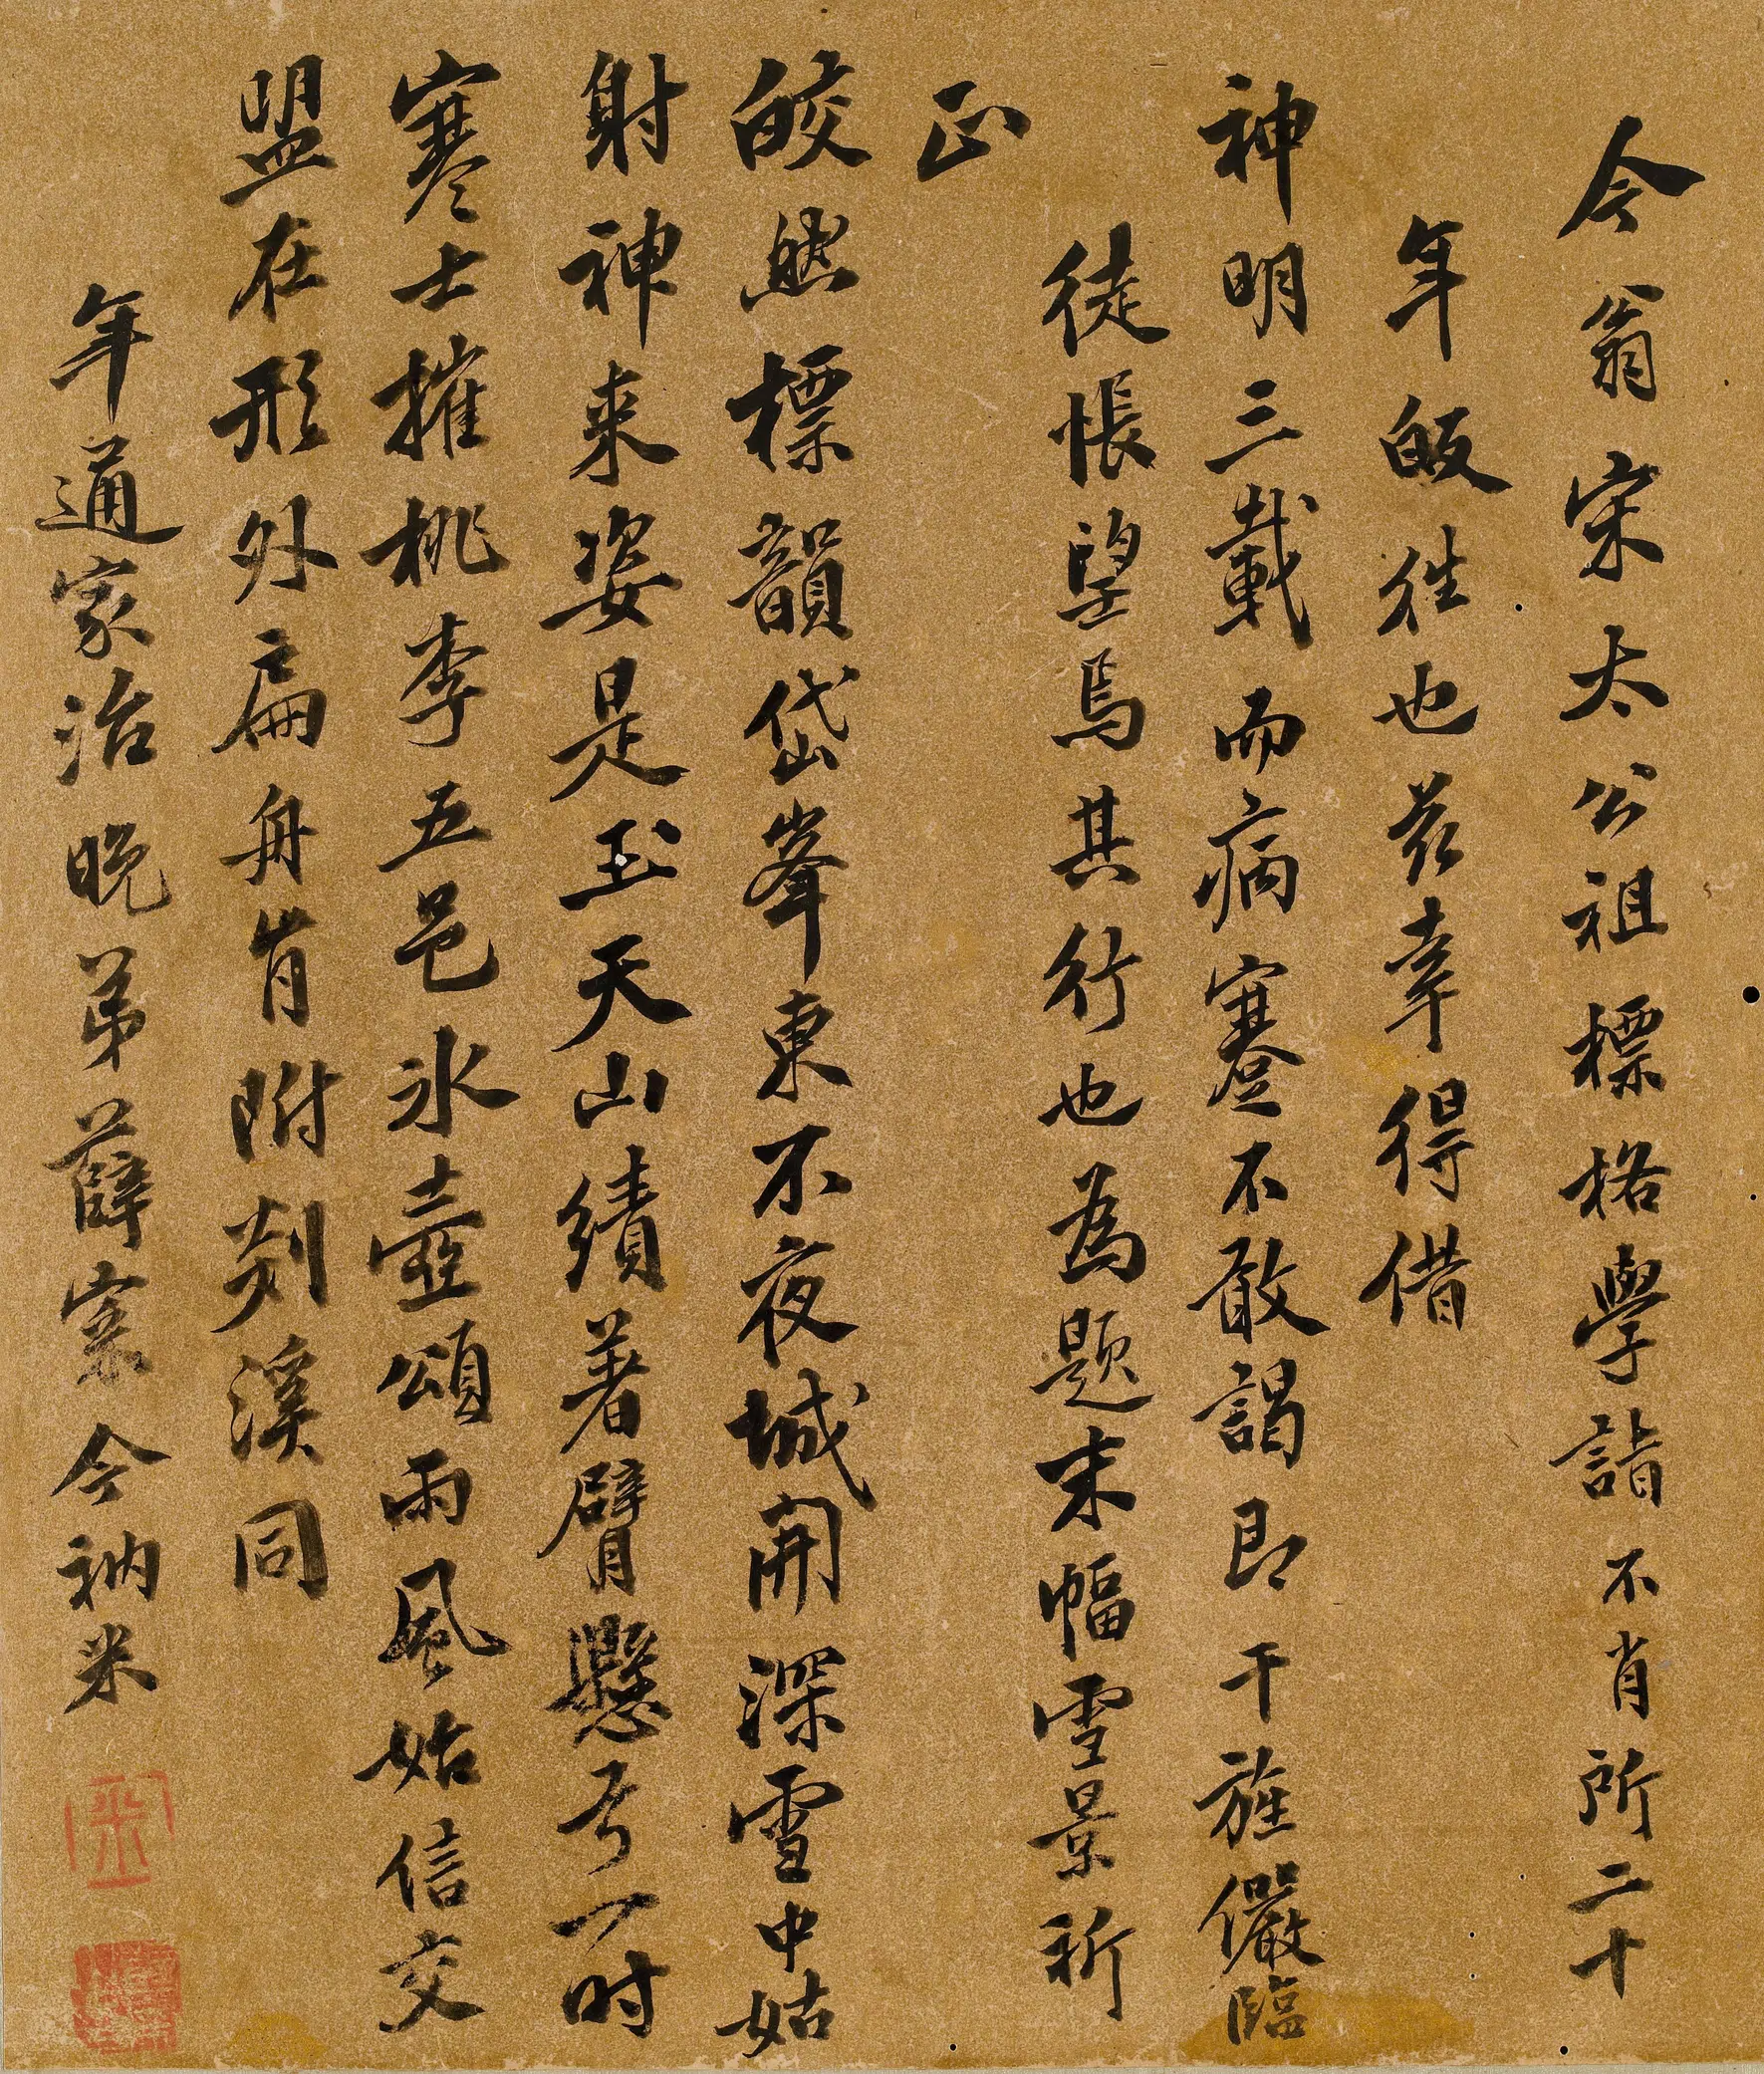 今翁宋太公祖標格學詣不肖所二十
年皈往也茲幸得借
神明三載而病蹇不敢謁即干旌儼臨
徒悵望焉其行也為題末幅雪景祈
正
皎然標韻岱峯東不夜城開深雪中姑
射神來姿是玉天山績著臂懸弓一時
寒士摧桃李五邑冰壺頌雨風始信交
盟在形外扁舟肯附剡溪同
年通家治晚弟薛寀今衲米